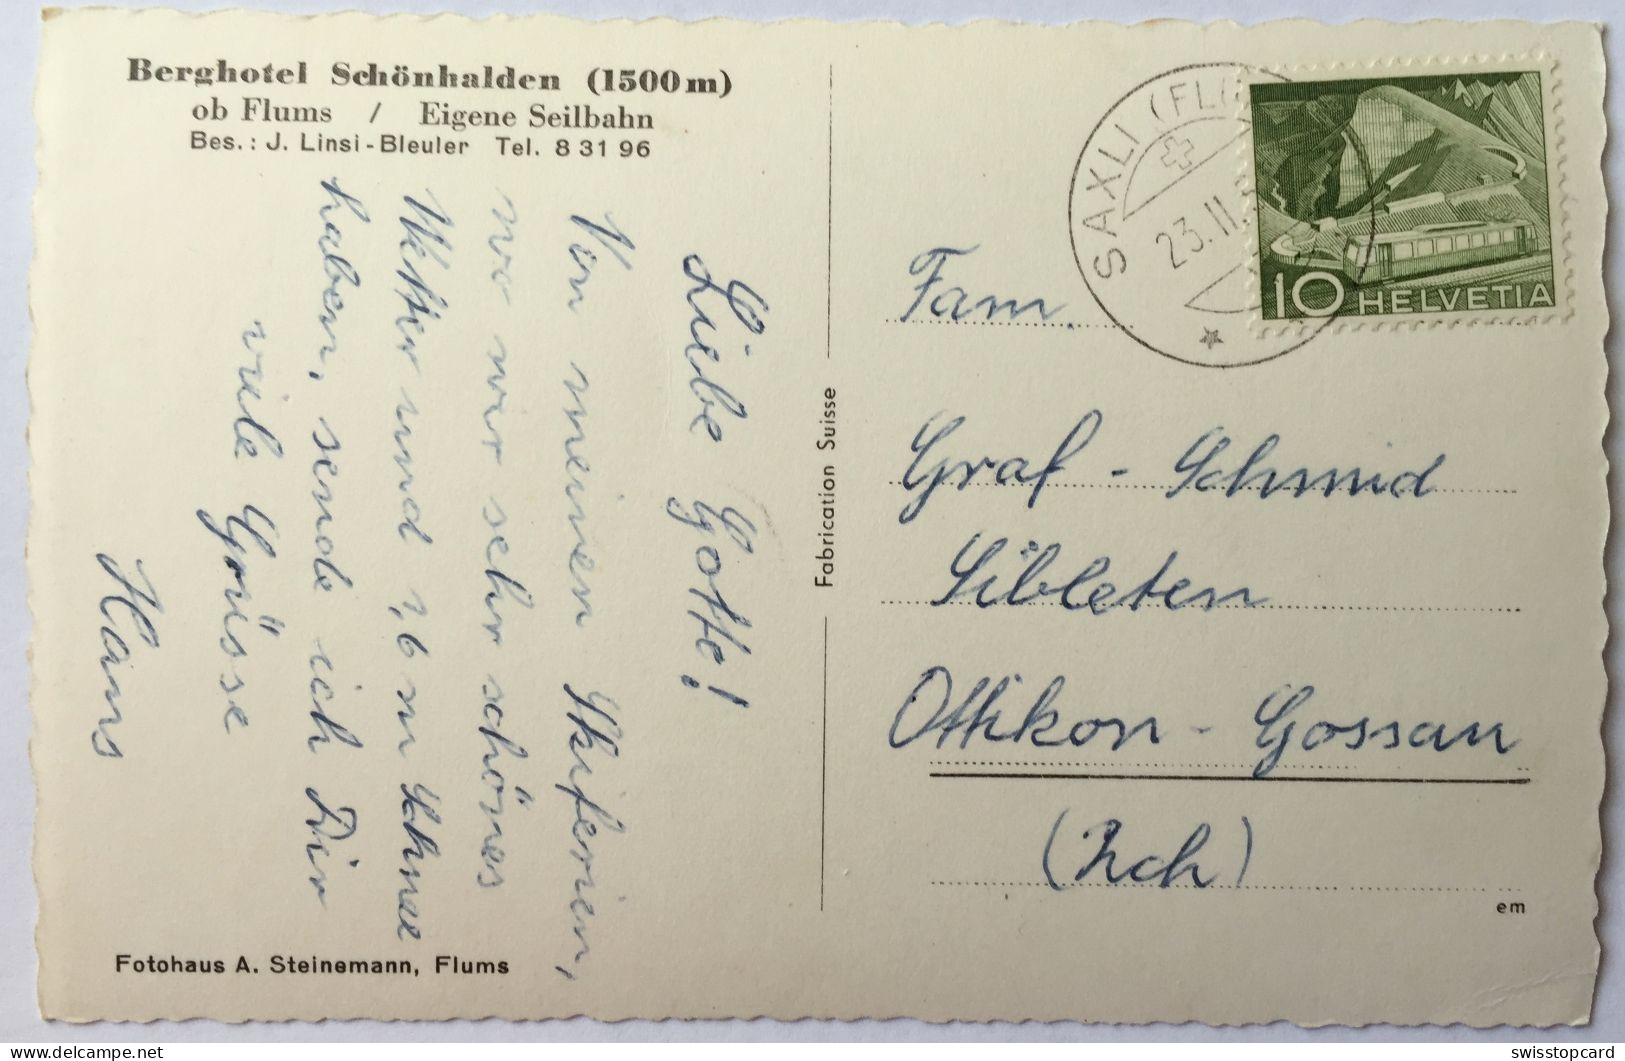 Berghotel Schönhalden (1500 m)
ob Flums / Eigene Seilbahn
Bes.: J. Linsi-Bleuler Tel. 8 31 96
Liebe Gotte!
Von meinen Skiferien,
wo wir sehr schönes
Wetter und 1,6 m Schnee
haben, sende ich Dir
viele Grüsse
Hans
Fotohaus A. Steinemann, Flums
Fabrication Suisse
SAXLI (FLU
23.II.
10 HELVETIA
Fam.
Graf - Schmid
Sibleten
Ottikon - Gossau
(Zch)
em
swisstopcard
delcampe.net